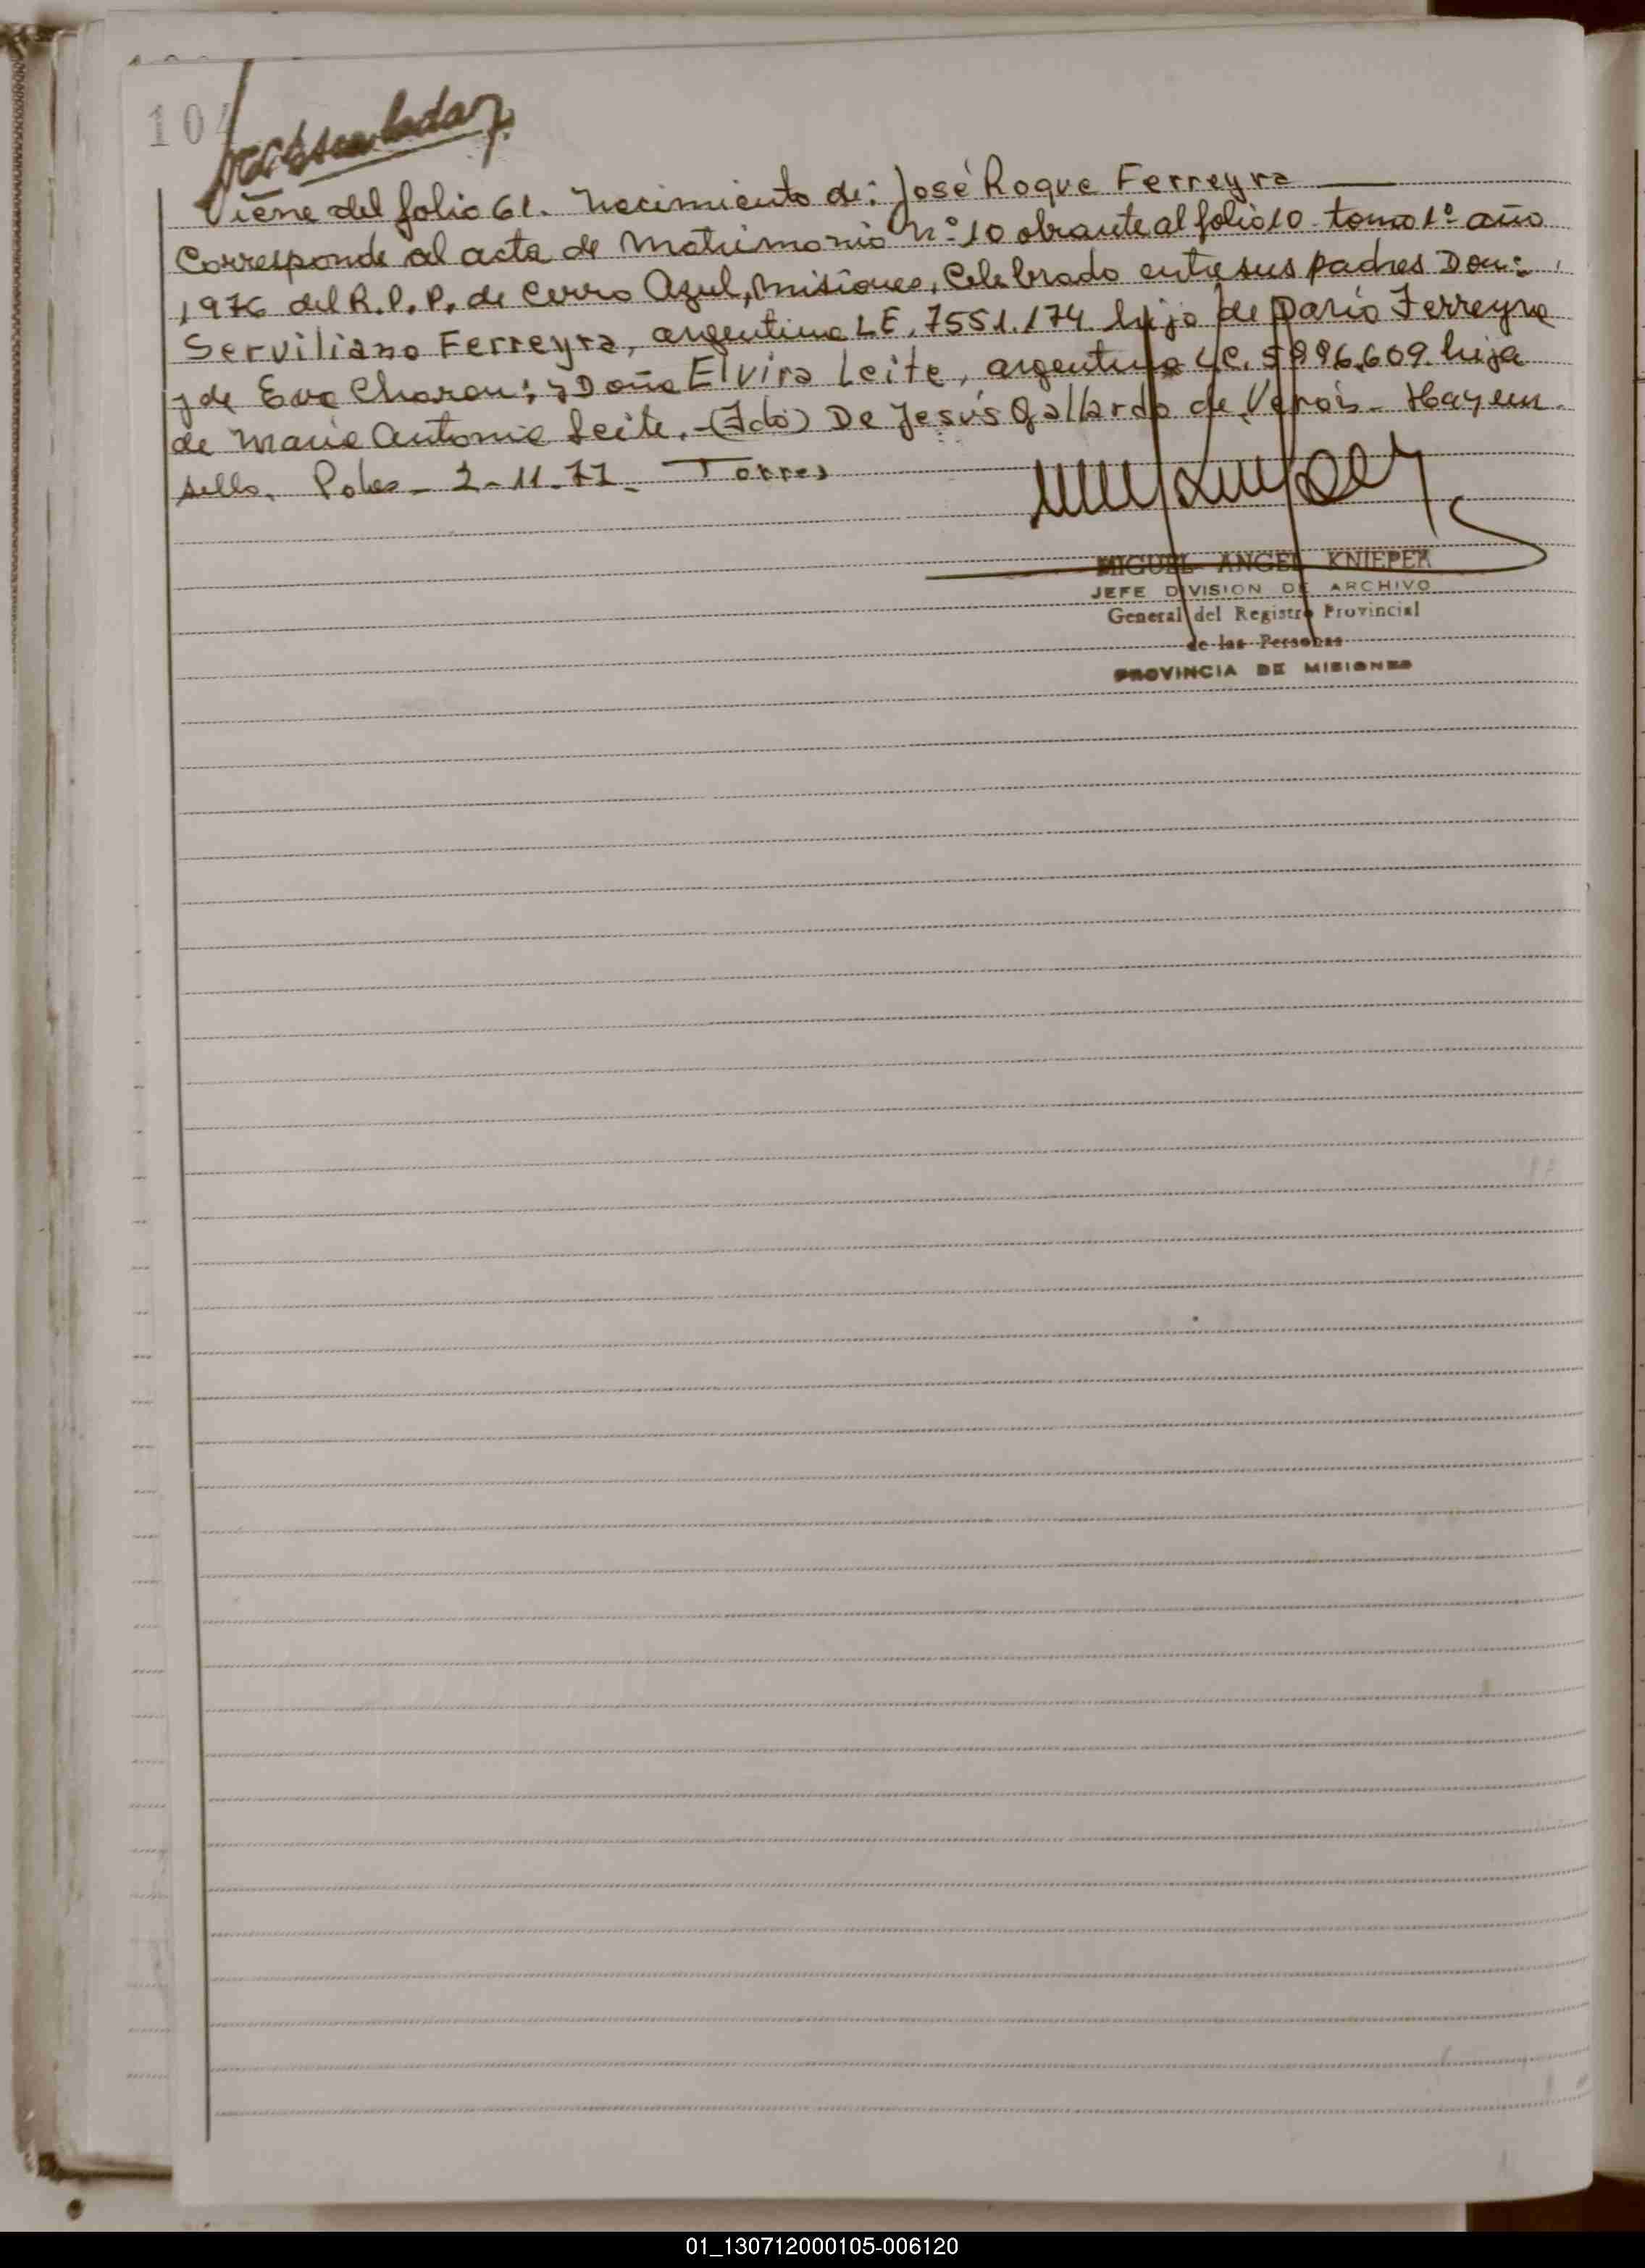 10
Viene del folio 61. Nacimiento de: José Roque Ferreyra
Corresponde al acta de Matrimonio N.º 10 obrante al folio 10 tomo 1º año
1976 del R.P.P. de Cerro Azul, Misiones, Celebrado entre sus padres Don:
Serviliano Ferreyra, argentino L.E. 7551.174 hijo de Dario Ferreyra
y de Eva Charon; y Doña Elvira Leite, argentina L.C. 5.996.609 hija
de Maria Antonia Leite. -(Fdo) De Jesús Gallardo de Verois. Hay un
sello. Pdas- 2-11-77- Torres
MIGUEL ANGEL KNIEPER
JEFE DIVISION DE ARCHIVO
General del Registro Provincial
de las Personas
PROVINCIA DE MISIONES
01_130712000105-006120